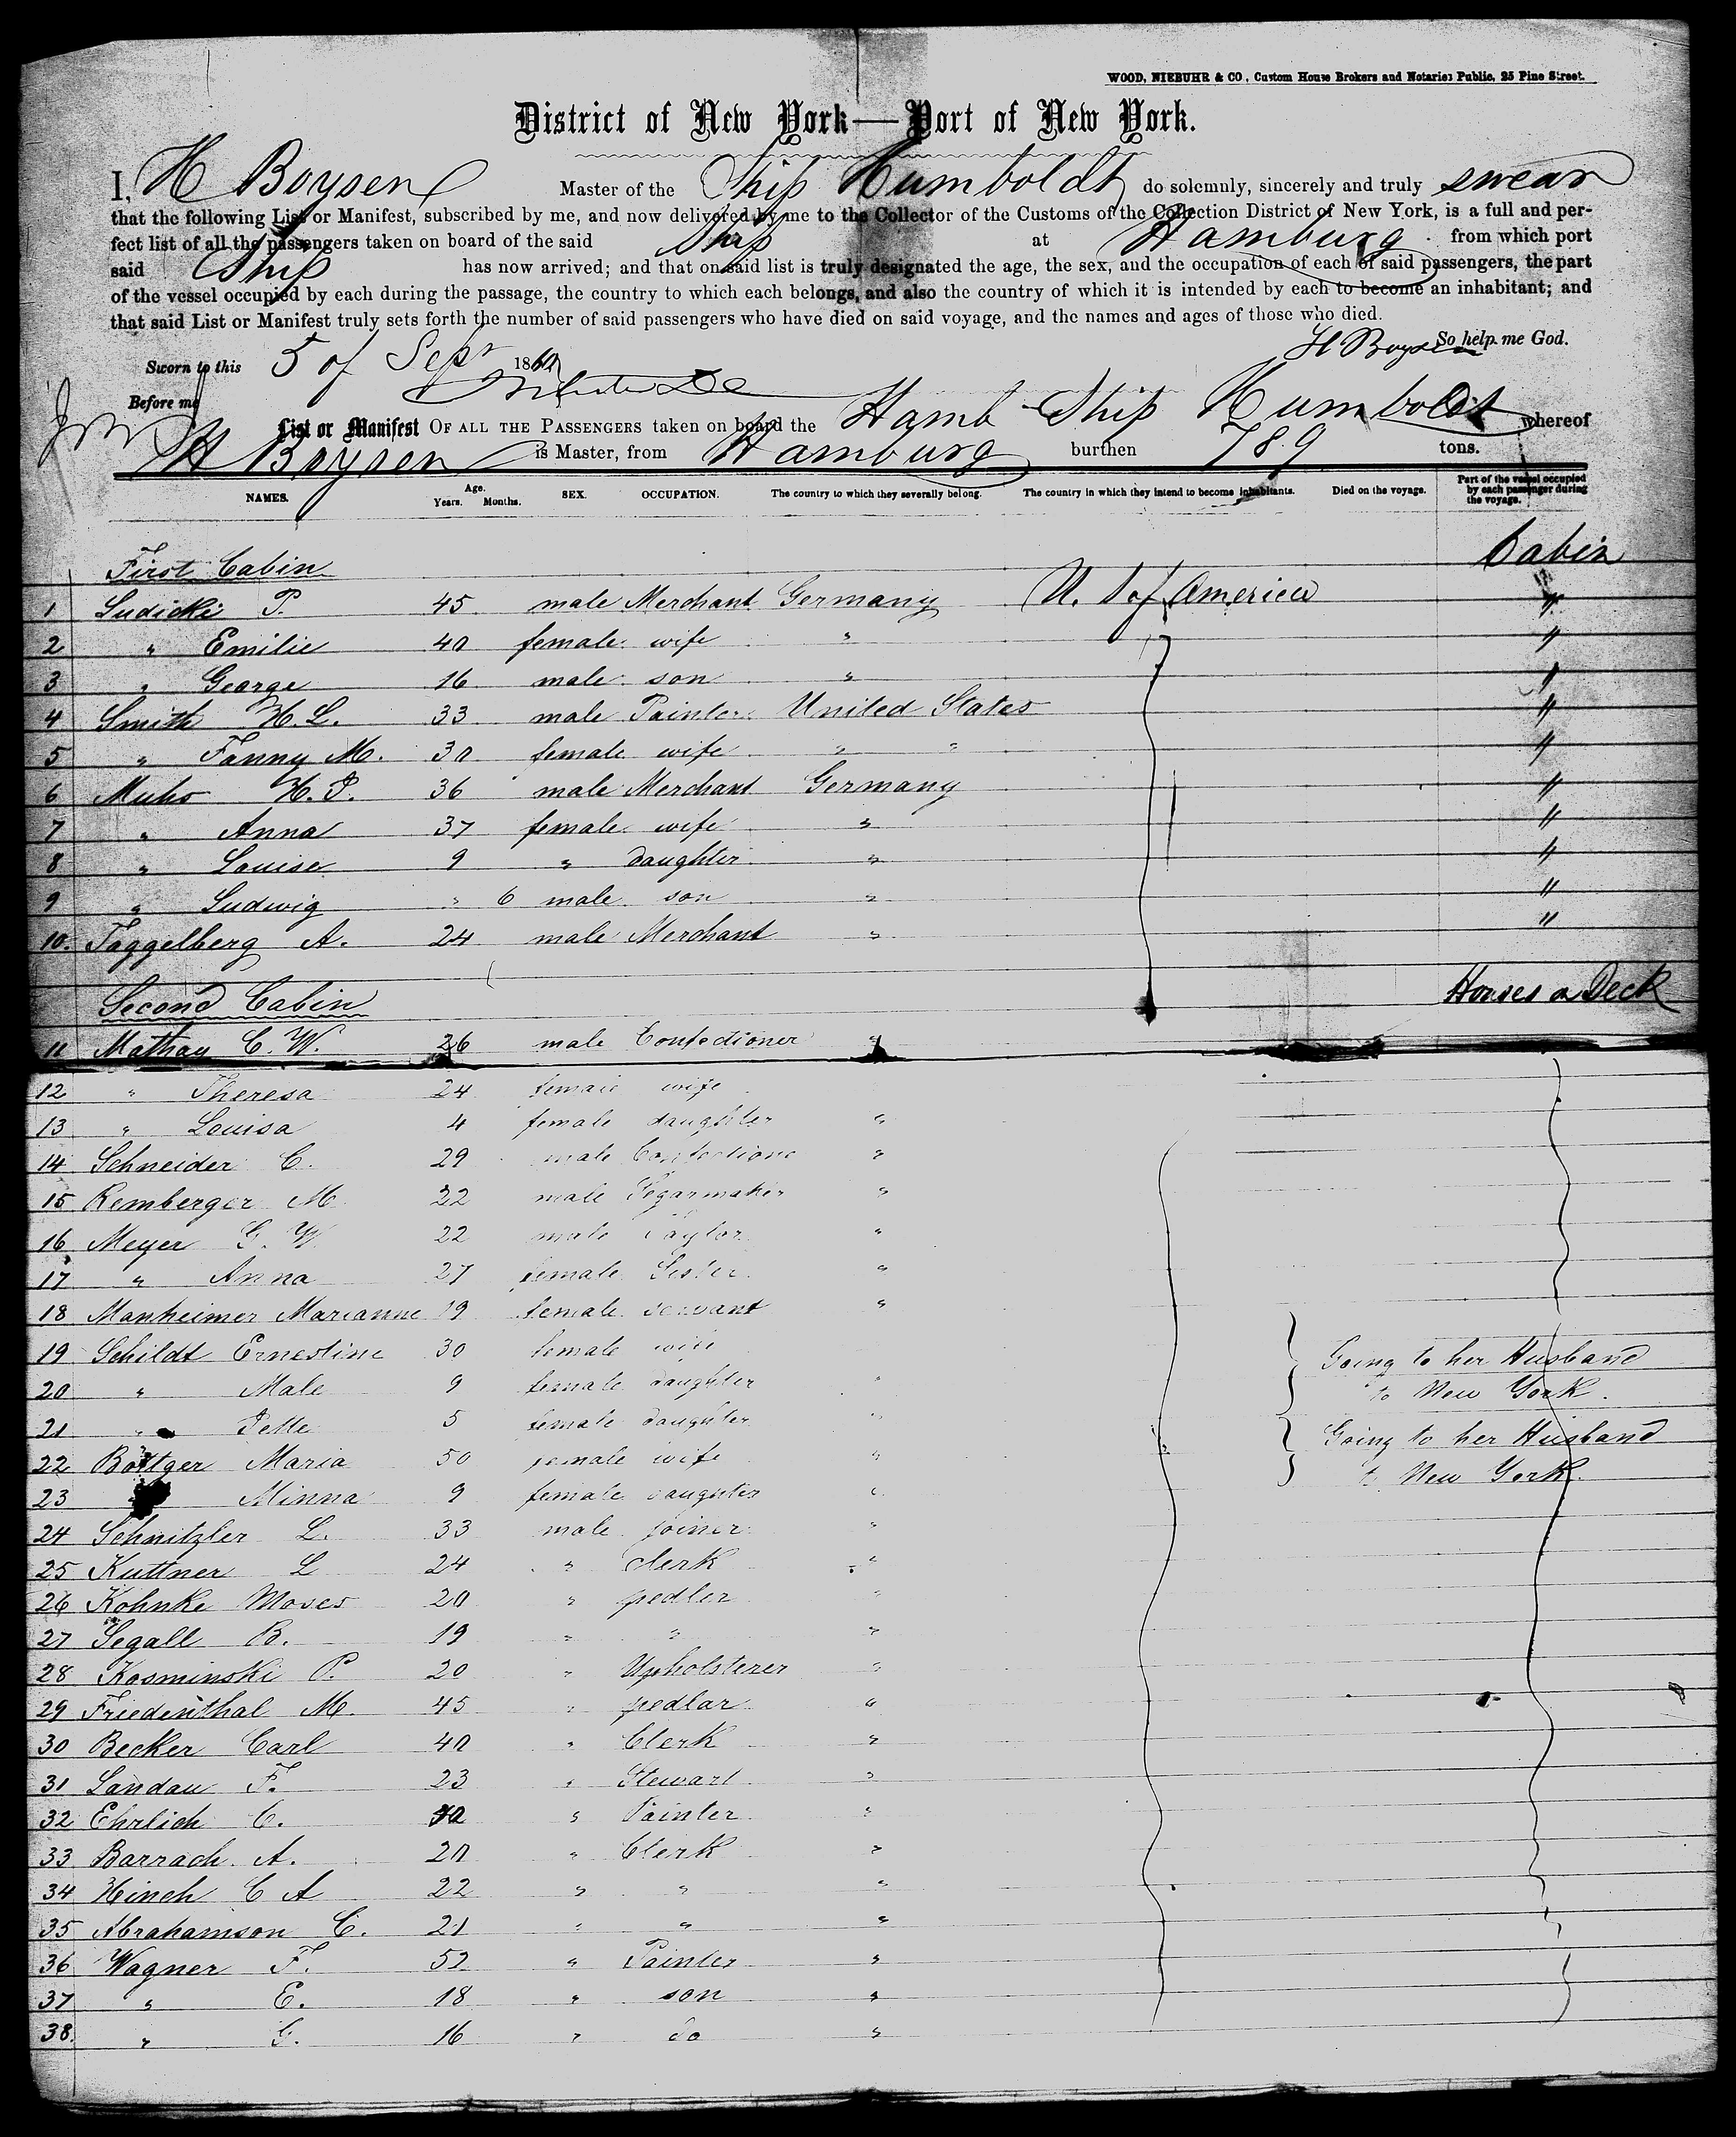 WOOD, NIEBUHR & CO, Custom House Brokers and Notaries Public, 25 Pine Street.
District of New York—Port of New York.
I, H Boysen Master of the Ship Humboldt do solemnly, sincerely and truly swear
that the following List or Manifest, subscribed by me, and now delivered by me to the Collector of the Customs of the Collection District of New York, is a full and per-
fect list of all the passengers taken on board of the said Ship at Hamburg from which port
said Ship has now arrived; and that on said list is truly designated the age, the sex, and the occupation of each of said passengers, the part
of the vessel occupied by each during the passage, the country to which each belongs, and also the country of which it is intended by each to become an inhabitant; and
that said List or Manifest truly sets forth the number of said passengers who have died on said voyage, and the names and ages of those who died.
So help me God.
H Boysen
Sworn to this 5 of Sepr 186
Before me
List or Manifest OF ALL THE PASSENGERS taken on board the Hamb Ship Humboldt whereof
H Boysen is Master, from Hamburg burthen 789 tons.
NAMES. Age. Years. Months. SEX. OCCUPATION. The country to which they severally belong. The country in which they intend to become inhabitants. Died on the voyage. Part of the vessel occupied by each passenger during the voyage.
First Cabin Cabin
1 Ludicke P. 45 male Merchant Germany U. S of America "
2 " Emilie 40 female wife " "
3 " George 16 male son " "
4 Smith H. L. 33 male Painter United States "
5 " Fanny M. 30 female wife " " "
6 Muhs H. P. 36 male Merchant Germany "
7 " Anna 37 female wife " "
8 " Louise 9 " daughter " "
9 " Ludwig " 6 male son " "
10. Taggelberg A. 24 male Merchant " "
Second Cabin Houses on Deck
11 Mathay C. W. 26 male Confectioner "
12 " Theresa 24 female wife
13 " Louisa 4 female daughter "
14 Schneider C. 29 male Confectione "
15 Remberger M 22 male Segarmaker "
16 Meyer G. W. 22 male Taylor "
17 " Anna 27 female Sister "
18 Manheimer Marianne 19 female servant "
19 Schildt Ernestine 30 female wife Going to her Husband
20 " Male 9 female daughter " to New York.
21 " Pette 5 female daughter " Going to her Husband
22 Bottger Maria 50 female wife " to New York.
23 Minna 9 female daughter "
24 Schnitzler L. 33 male joiner "
25 Kuttner L 24 " Clerk "
26 Kohnke Moses 20 " pedler "
27 Segall B. 19 " " "
28 Kosminski P. 20 " Upholsterer "
29 Friedenthal M. 45 " pedlar "
30 Becker Carl 40 " Clerk "
31 Landau F. 23 " Stewart "
32 Ehrlich C. " Painter "
33 Barrach A. 20 " Clerk "
34 Hinch C A 22 " " "
35 Abrahamson C. 21 " " "
36 Wagner F. 52 " Painter "
37 " E. 18 " son "
38. " G. 16 " do "